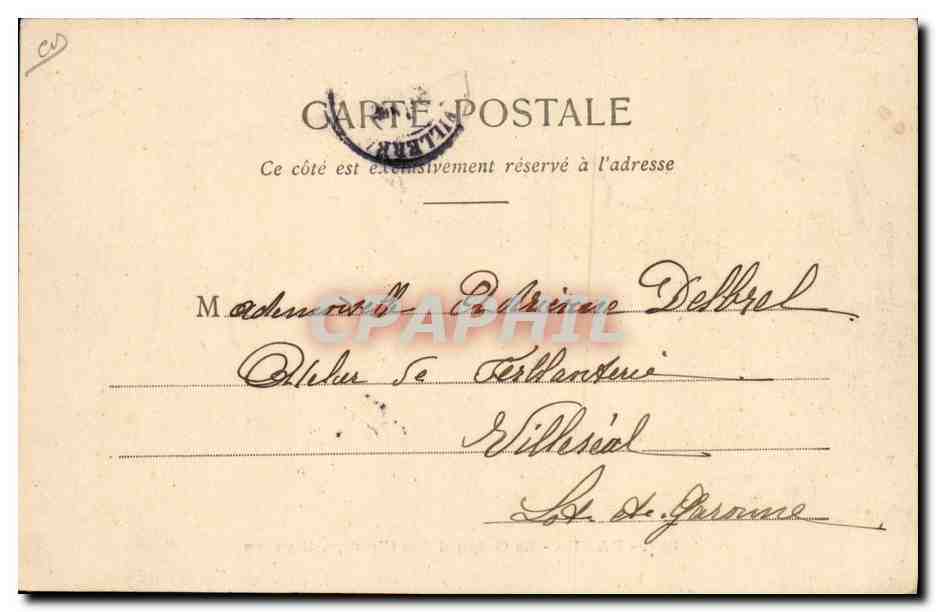 CARTE POSTALE
VILLERE
Ce côté est exclusivement réservé à l'adresse
CPAPHIL
Mademoiselle Adrienne Delbrel
Atelier de Ferblanterie
Villeréal
Lot-et-Garonne